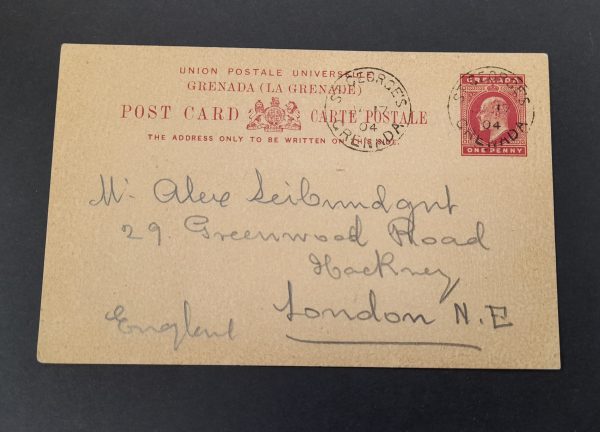 UNION POSTALE UNIVERSELLE
GRENADA (LA GRENADE)
POST CARD CARTE POSTALE
THE ADDRESS ONLY TO BE WRITTEN ON THIS
ST. GEORGES
17
04
GRENADA
GRENADA
ONE PENNY
ST. GEORGES
17
04
GRENADA
Mr. Alex Leibundgut
29. Greenwood Road
Hackney
London N.E
England